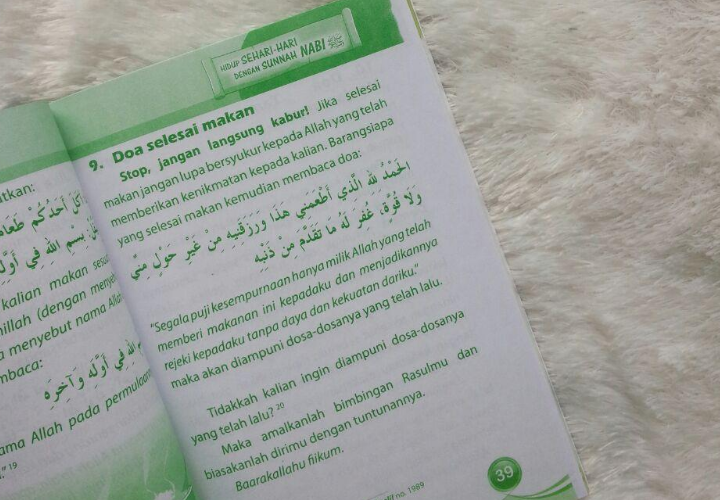 utkan:
كُلَ أَحَدُكُمْ طَعَامًا
بِسْمِ اللهِ فِي أَوَّلِهِ
kalian makan
millah (dengan
menyebut nama Allah
mbaca:
اللهِ فِي أَوَّلِهِ وَآخِرِهِ
ama Allah pada permulaan
." 19
HIDUP SEHARI-HARI
DENGAN SUNNAH NABI ﷺ
9. Doa selesai makan
Stop, jangan langsung kabur! Jika selesai
makan jangan lupa bersyukur kepada Allah yang telah
memberikan kenikmatan kepada kalian. Barangsiapa
yang selesai makan kemudian membaca doa:
الْحَمْدُ لِلهِ الَّذِي أَطْعَمَنِي هَذَا وَرَزَقَنِيهِ مِنْ غَيْرِ حَوْلٍ مِنِّي
وَلَا قُوَّةٍ، غُفِرَ لَهُ مَا تَقَدَّمَ مِنْ ذَنْبِهِ
"Segala puji kesempurnaan hanya milik Allah yang telah
memberi makanan ini kepadaku dan menjadikannya
rejeki kepadaku tanpa daya dan kekuatan dariku,"
maka akan diampuni dosa-dosanya yang telah lalu.
Tidakkah kalian ingin diampuni dosa-dosanya
yang telah lalu? 20
Maka amalkanlah bimbingan Rasulmu dan
biasakanlah dirimu dengan tuntunannya.
Baarakallahu fiikum.
no. 1989
39